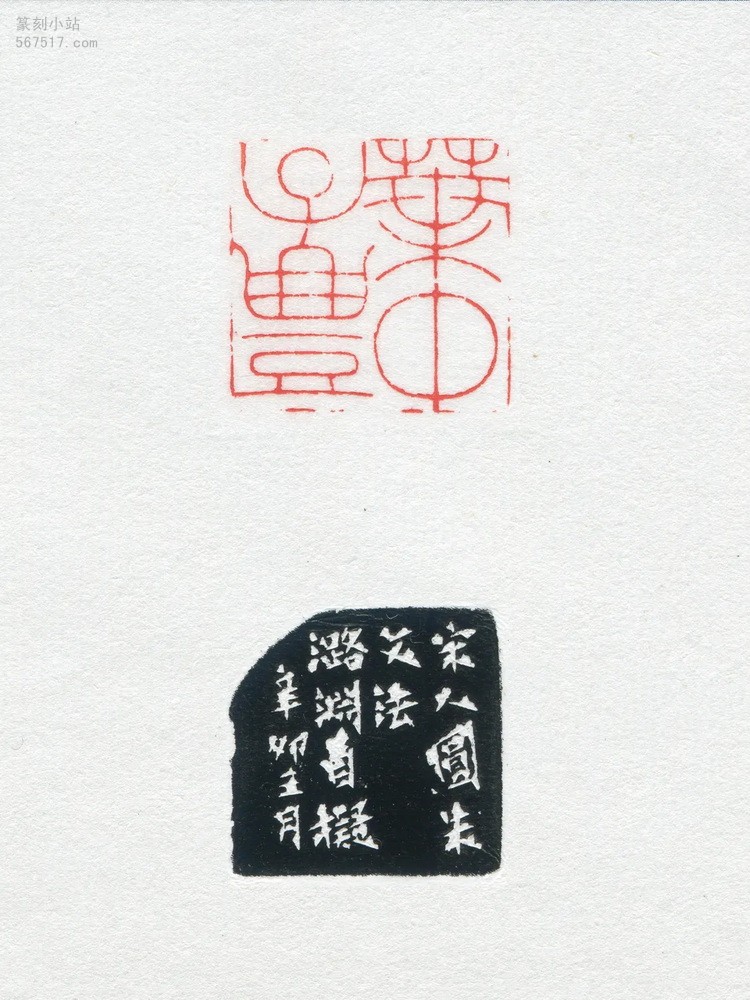 篆刻小站
567517.com
中
子豊
宋人圓朱
文法
潞淵自擬
辛卯月